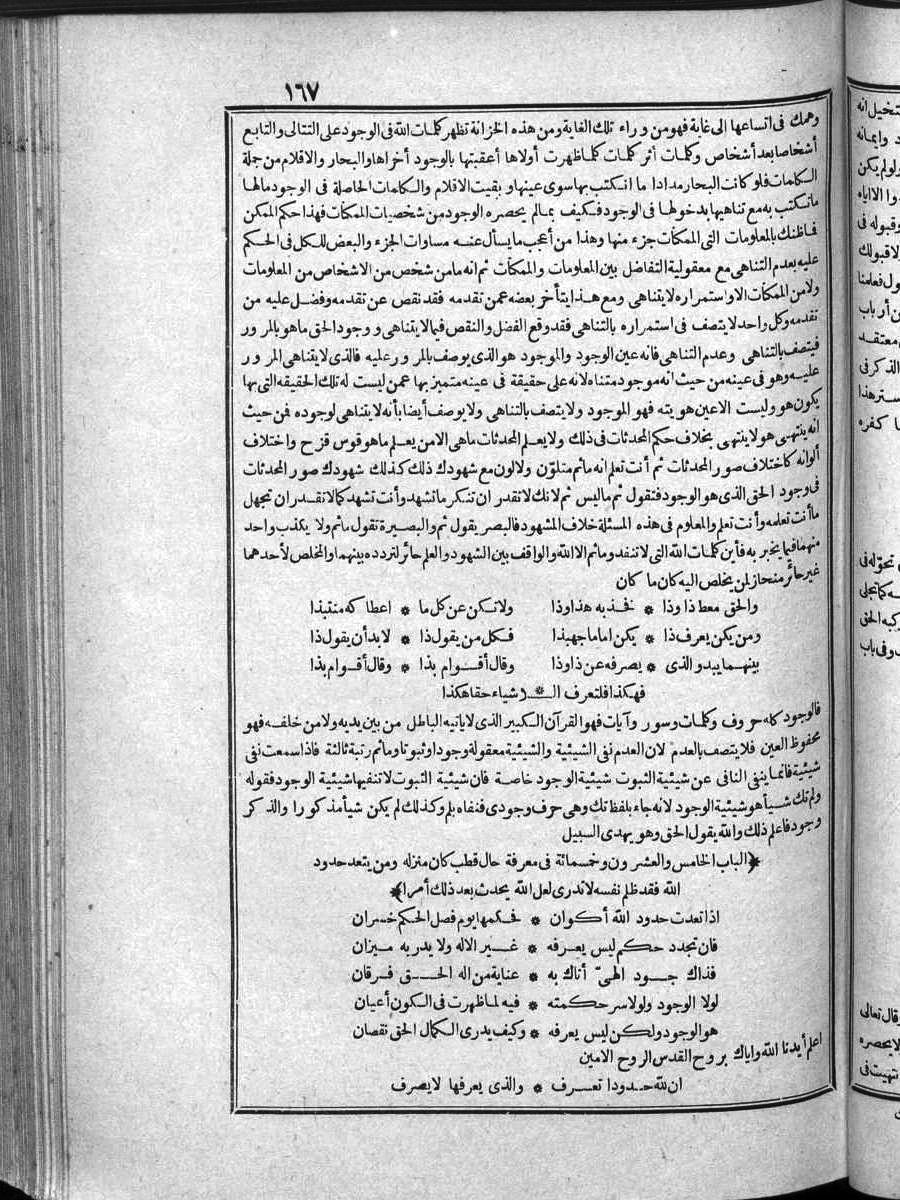 ١٦٧
وهمك فى اتساعها الى غاية فهو من وراء تلك الغاية ومن هذه الخزانة تظهر كلمات الله فى الوجود على التتالى والتتابع
أشخاصا بعد أشخاص وكلمات أثر كلمات كلما ظهرت أولاها أعقبتها بالوجود أخراها والبحار والاقلام من جملة
الكلمات فلو كانت البحار مدادا ما انكتب بها سوى عينها وبقيت الاقلام والكلمات الحاصلة فى الوجود مالها
ما تنكتب به مع تناهيها بدخولها فى الوجود فكيف بمالم يحصره الوجود من شخصيات الممكنات فهذا حكم الممكن
فاظنك بالمعلومات التى الممكنات جزء منها وهذا من أعجب ما يسأل عنه مساوات الجزء والبعض للكل فى الحكم
عليه بعدم التناهى مع معقولية التفاضل بين المعلومات والممكنات ثم انه مامن شخص من الاشخاص من المعلومات
ولامن الممكنات الا واستمراره لا يتناهى ومع هذا يتأخر بعضه عمن تقدمه فقد نقص عن تقدمه وفضل عليه من
تقدمه وكل واحد لا يتصف فى استمراره بالتناهى فقد وقع الفضل والنقص فيما لا يتناهى ووجود الحق ماهو بالمرور
فيتصف بالتناهى وعدم التناهى فانه عين الوجود والموجود هو الذى يوصف بالمرور عليه فالذى لا يتناهى المرور
عليه وهو فى عينه من حيث انه موجود متناه لانه على حقيقة فى عينه متميز بها عمن ليست له تلك الحقيقه التى بها
يكون هو وليست الا عين هويته فهو الموجود ولا يتصف بالتناهى ولا يوصف أيضا بأنه لا يتناهى لوجوده فمن حيث
انه ينتهى هو لا ينتهى بخلاف حكم المحدثات فى ذلك ولا يعلم المحدثات ماهى الا من يعلم ماهو قوس قزح واختلاف
ألوانه كاختلاف صور المحدثات ثم أنت تعلم انه ماثم متلوّن ولا لون مع شهودك ذلك كذلك شهودك صور المحدثات
فى وجود الحق الذى هو الوجود فتقول ثم ماليس ثم لانك لا تقدر ان تنكر ما تشهد وأنت تشهد كما لا تقدر ان تجهل
ما أنت تعلمه وأنت تعلم والمعلوم فى هذه المسئلة خلاف المشهود فالبصر يقول ثم والبصيرة تقول ماثم ولا يكذب واحد
منهما فيما يخبر به فأين كلمات الله التى لا تنفد وماثم الا الله والواقف بين الشهود والعلم حائر لتردده بينهما والمخلص لأحدهما
غير حائر منحاز لمن يخلص اليه كان ما كان
والحق معط ذا وذا * فخذ به هذا وذا ولا تكن عن كل ما * اعطا كه منتبذا
ومن يكن يعرف ذا * يكن اماما جهبذا فكل من يقول ذا * لابد أن يقول ذا
بينهما يبدو الذى * يصرفه عن ذا وذا وقال أقوام بذا * وقال أقوام بذا
فهكذا فلتعرف الـ * ـاشياء حقا هكذا
فالوجود كله حروف وكلمات وسور وآيات فهو القرآن الكبير الذى لا يأتيه الباطل من بين يديه ولا من خلفه فهو
محفوظ العين فلا يتصف بالعدم لان العدم نفى الشيئية والشيئية معقولة وجودا وثبوتا وماثم رتبة ثالثة فاذا سمعت نفى
شيئية فانما ينفى النافى عن شيئية الثبوت شيئية الوجود خاصة فان شيئية الثبوت لا تنفيها شيئية الوجود فقوله
ولم تك شيأ هو شيئية الوجود لانه جاء بلفظ تك وهى حرف وجودى فنفاه بلم وكذلك لم يكن شيأ مذكورا والذكر
وجود فاعلم ذلك والله يقول الحق وهو يهدى السبيل
﴿الباب الخامس والعشرون وخمسمائة فى معرفة حال قطب كان منزله ومن يتعد حدود
الله فقد ظلم نفسه لا تدرى لعل الله يحدث بعد ذلك أمرا﴾
اذا تعدت حدود الله أكوان * فحكمها يوم فصل الحكم خسران
فان تجدد حكم ليس يعرفه * غير الاله ولا يدريه ميزان
فذاك جود الهىّ أتاك به * عناية من اله الحق فرقان
لولا الوجود ولولا سر حكمته * فيه لما ظهرت فى الكون أعيان
هو الوجود ولكن ليس يعرفه * وكيف يدرى الكمال الحق نقصان
اعلم أيدنا الله واياك بروح القدس الروح الامين
ان لله حدودا تعرف * والذى يعرفها لا يصرف